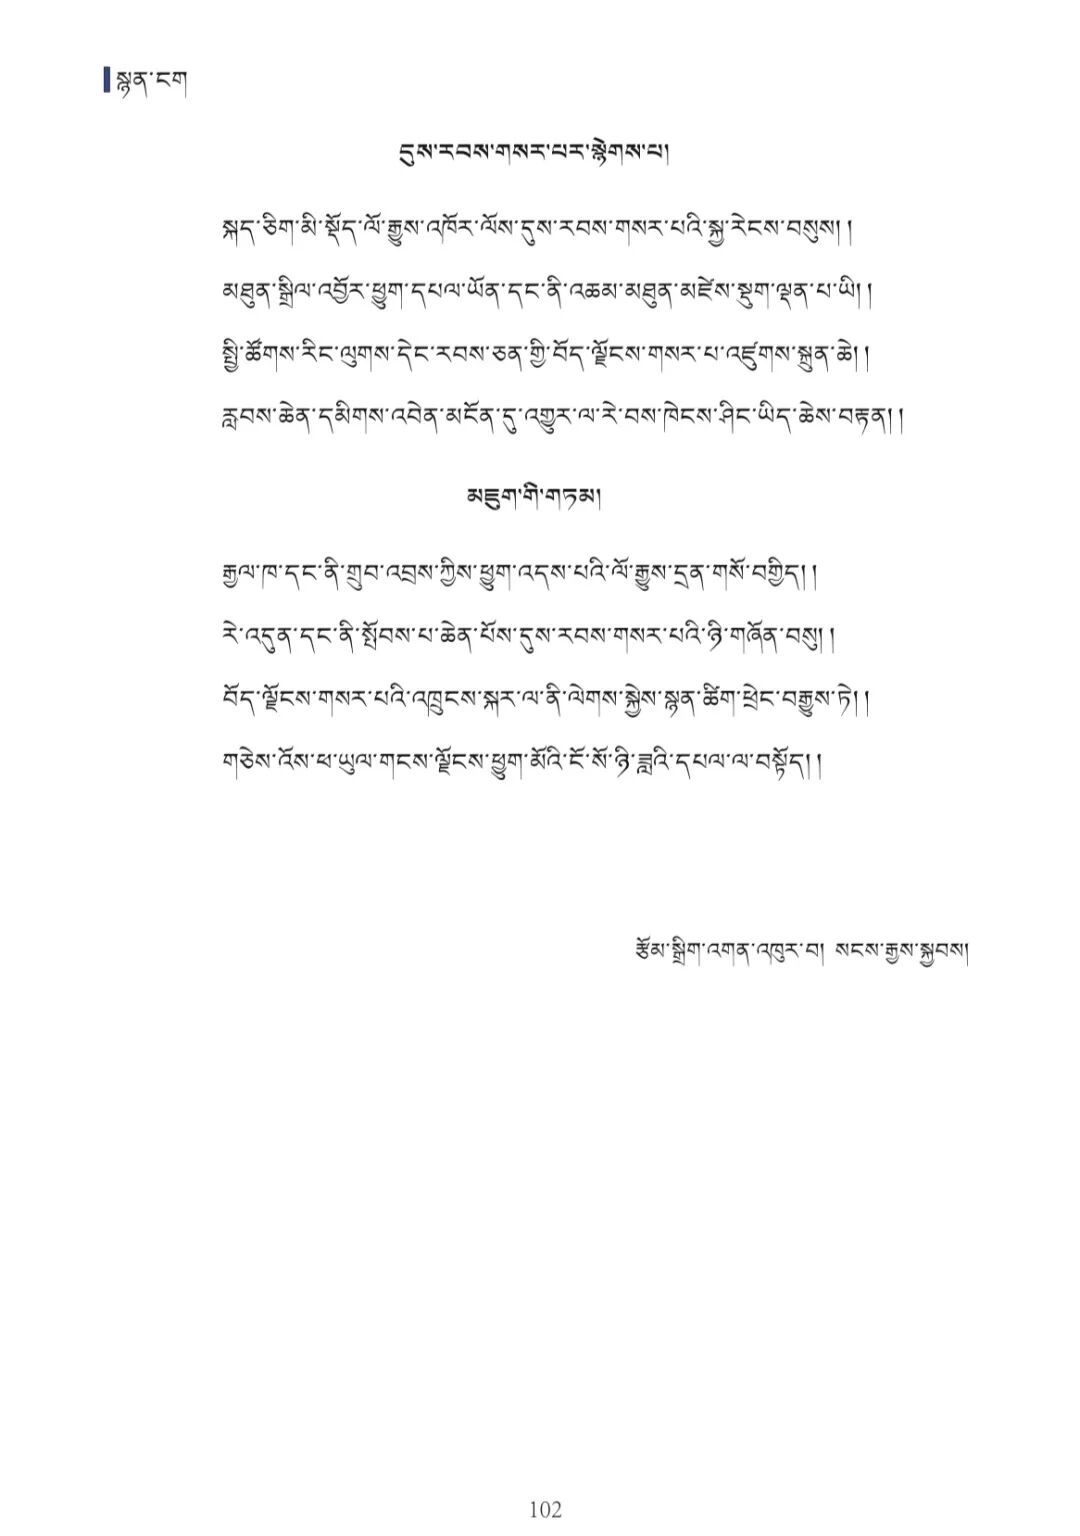 སྙན་ངག
དུས་རབས་གསར་པར་སྙེགས་པ།
སྐད་ཅིག་མི་སྡོད་ལོ་རྒྱུས་འཁོར་ལོས་དུས་རབས་གསར་པའི་སྐྱ་རེངས་བསུས། །
མཐུན་སྒྲིལ་འབྱོར་ཕྱུག་དཔལ་ཡོན་དང་ནི་འཆམ་མཐུན་མཛེས་སྡུག་ལྡན་པ་ཡི། །
སྤྱི་ཚོགས་རིང་ལུགས་དེང་རབས་ཅན་གྱི་བོད་ལྗོངས་གསར་པ་འཛུགས་སྐྲུན་ཆེ། །
རླབས་ཆེན་དམིགས་འབེན་མངོན་དུ་འགྱུར་ལ་རེ་བས་ཁེངས་ཤིང་ཡིད་ཆེས་བརྟན། །
མཇུག་གི་གཏམ།
རྒྱལ་ཁ་དང་ནི་གྲུབ་འབྲས་ཀྱིས་ཕྱུག་འདས་པའི་ལོ་རྒྱུས་དྲན་གསོ་བགྱིད། །
རེ་འདུན་དང་ནི་སྤོབས་པ་ཆེན་པོས་དུས་རབས་གསར་པའི་ཉི་གཞོན་བསུ། །
བོད་ལྗོངས་གསར་པའི་འཁྲུངས་སྐར་ལ་ནི་ལེགས་སྐྱེས་སྙན་ཚིག་ཕྲེང་བརྒྱུས་ཏེ། །
གཅེས་འོས་ཕ་ཡུལ་གངས་ལྗོངས་ཕྱུག་མོའི་ངོ་སོ་ཉི་ཟླའི་དཔལ་ལ་བསྟོད། །
རྩོམ་སྒྲིག་འགན་འཁུར་བ། སངས་རྒྱས་སྐྱབས།
102